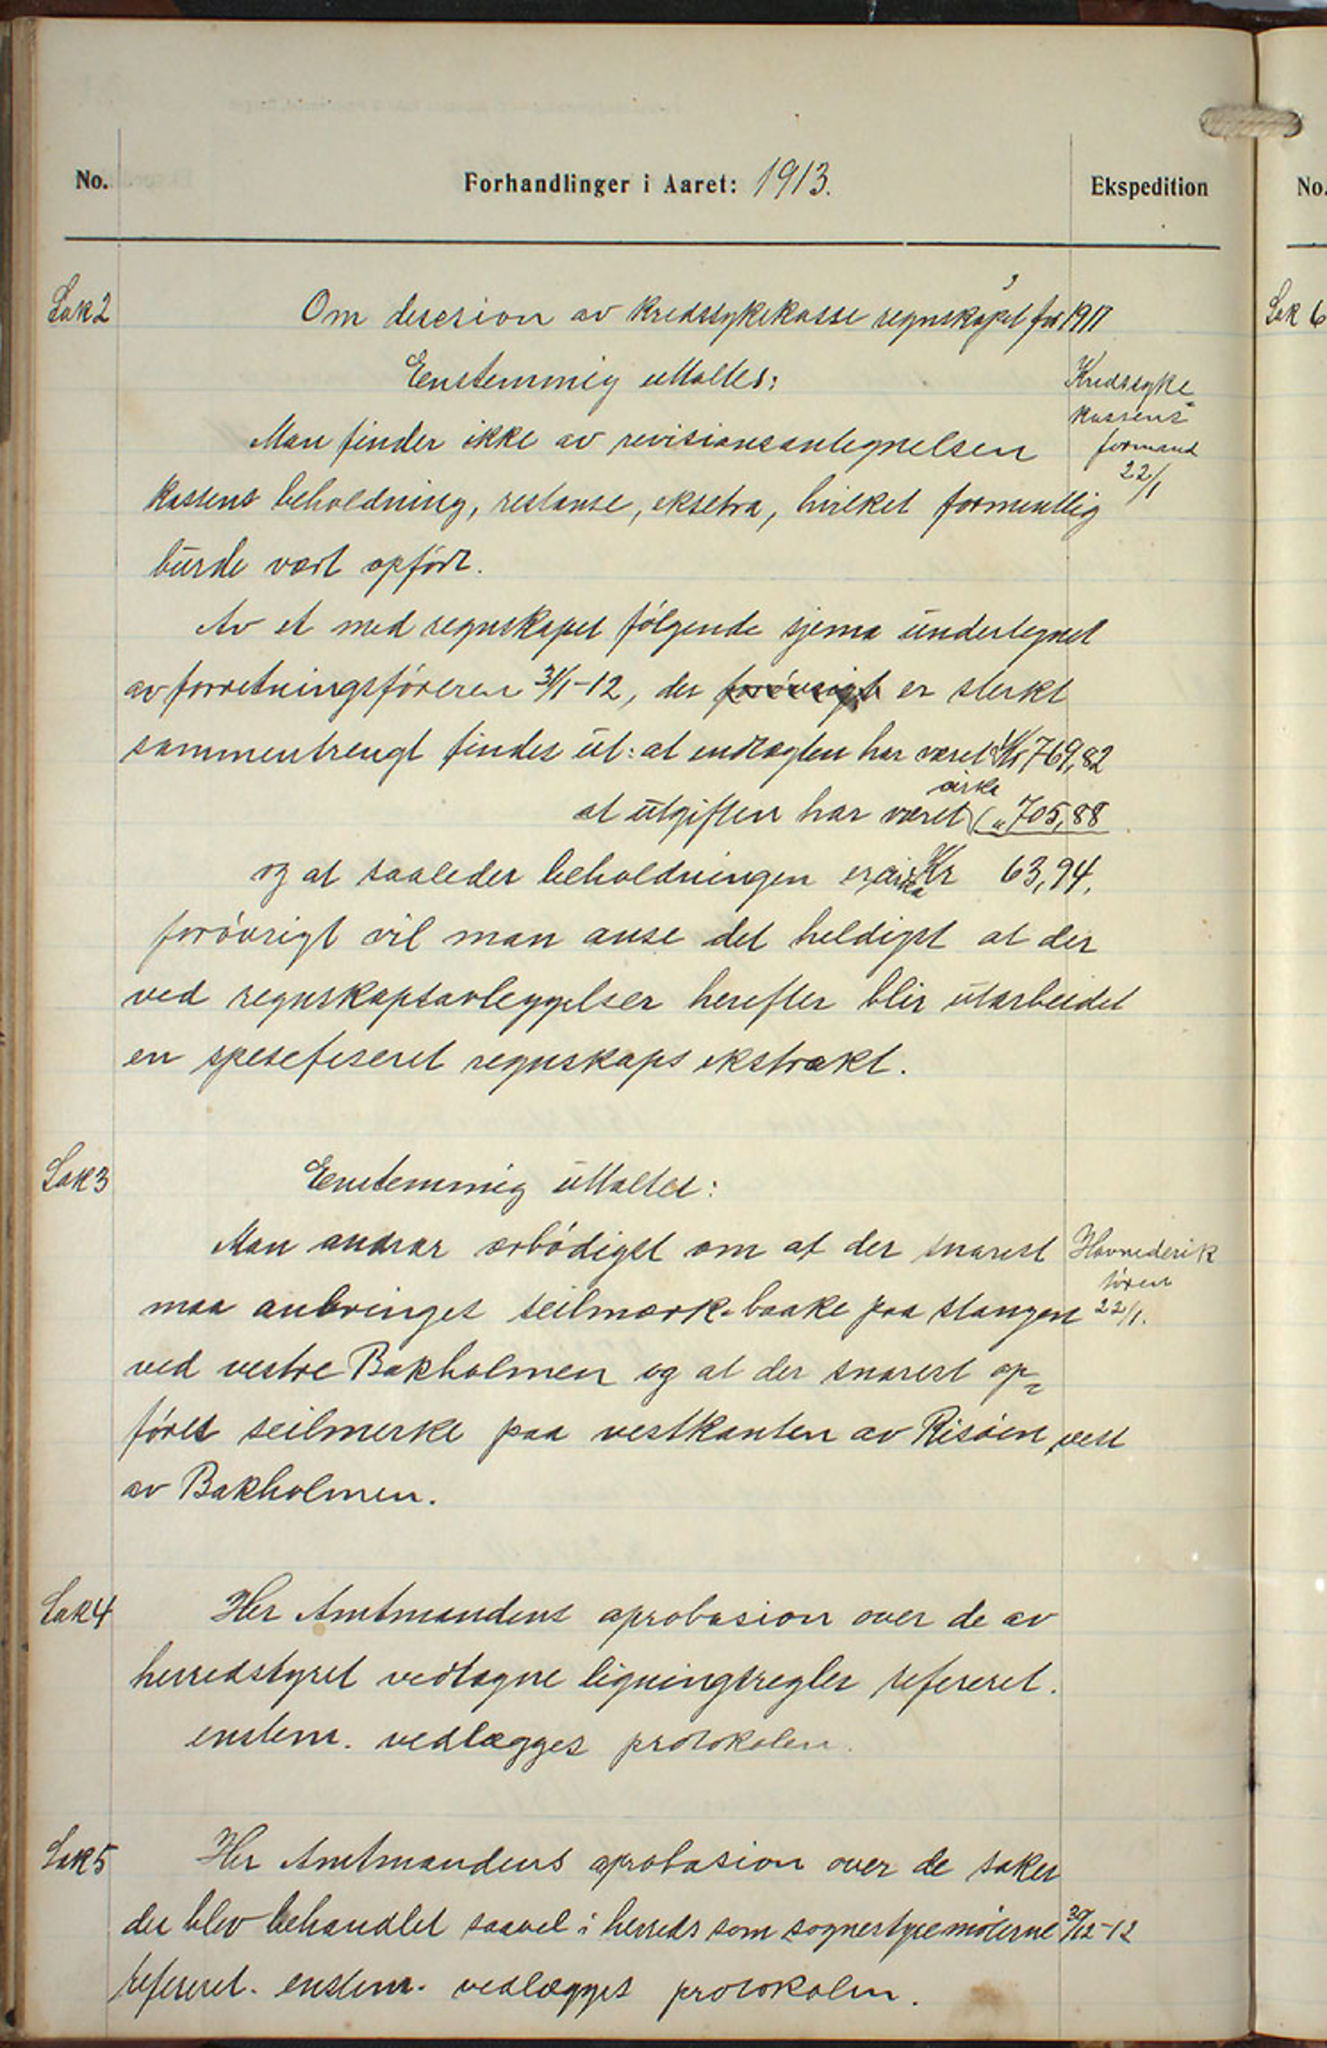 No.
Forhandlinger i Aaret: 1913.
Ekspedition
No.
Sak 2
Om desesion av kredssykekasse regnskapet for 1911
Sak 6
Eenstemmig uttaltes:
Kredssyke
kassens
formand
22/1
Man finder ikke av revisionsantegnelsen
kassens beholdning, restanse, eksetra, hvilket formentlig
burde vært opført.
Av et med regnskapet følgende sjema undertegnet
av forretningsføreren 31/1-12, der forøvrigt er sterkt
sammentrengt findes ut: at indtægten har været Kr 769,82
cirka
at utgiften har været " 705,88
og at saaledes beholdningen er cirka Kr 63,94.
forøvrigt vil man anse det heldigst at der
ved regnskapsavleggelser herefter blir utarbeidet
en spesefiseret regnskaps ekstrakt.
Sak 3
Eenstemmig uttaltes:
Man andrar ærbødigst om at der snarest
Havnedirik
tøren
22/1.
maa anbringes seilmærk-baake paa stangen
ved vestre Bakholmen og at der snarest op=
føres seilmerke paa vestkanten av Risøen vest
av Bakholmen.
Sak 4
Her Amtmandens aprobasion over de av
herredstyret vedtagne ligningsregler refereret.
enstem. vedlægges protokolen.
Sak 5
Her Amtmandens aprobasion over de saker
der blev behandlet saavel i herreds som sognestyremøterne 30/12-12
refereret. enstem. vedlægges protokolen.